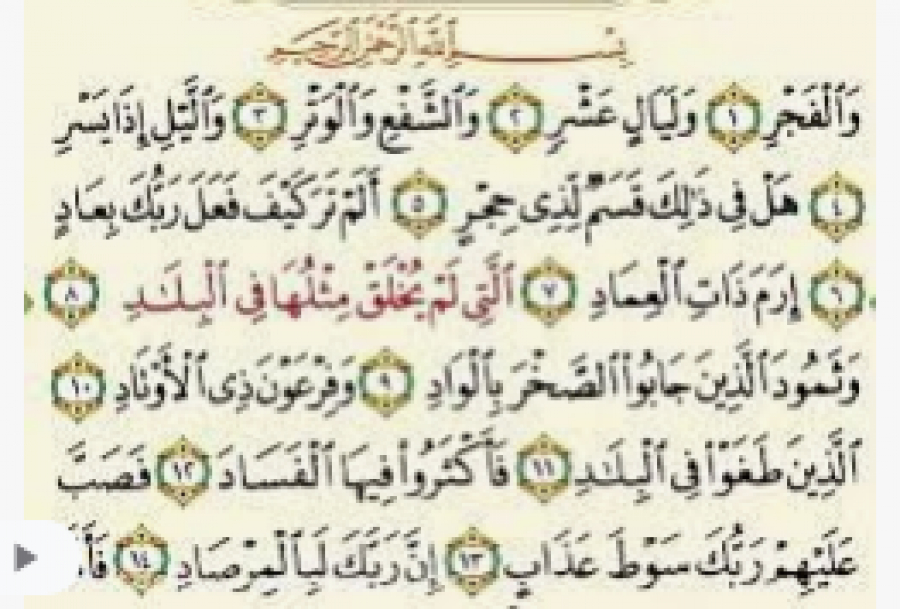 بِسْمِ ٱللَّهِ ٱلرَّحْمَٰنِ ٱلرَّحِيمِ
وَٱلْفَجْرِ ١ وَلَيَالٍ عَشْرٍ ٢ وَٱلشَّفْعِ وَٱلْوَتْرِ ٣ وَٱلَّيْلِ إِذَا يَسْرِ
٤ هَلْ فِى ذَٰلِكَ قَسَمٌ لِّذِى حِجْرٍ ٥ أَلَمْ تَرَ كَيْفَ فَعَلَ رَبُّكَ بِعَادٍ
٦ إِرَمَ ذَاتِ ٱلْعِمَادِ ٧ ٱلَّتِى لَمْ يُخْلَقْ مِثْلُهَا فِى ٱلْبِلَٰدِ ٨
وَثَمُودَ ٱلَّذِينَ جَابُوا۟ ٱلصَّخْرَ بِٱلْوَادِ ٩ وَفِرْعَوْنَ ذِى ٱلْأَوْتَادِ ١٠
ٱلَّذِينَ طَغَوْا۟ فِى ٱلْبِلَٰدِ ١١ فَأَكْثَرُوا۟ فِيهَا ٱلْفَسَادَ ١٢ فَصَبَّ
عَلَيْهِمْ رَبُّكَ سَوْطَ عَذَابٍ ١٣ إِنَّ رَبَّكَ لَبِٱلْمِرْصَادِ ١٤